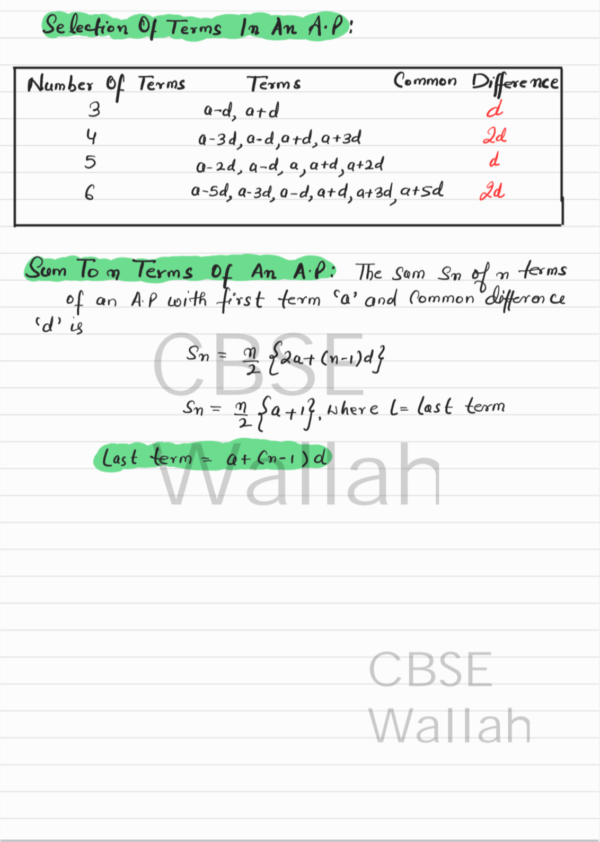 Selection Of Terms In An A.P:
Number Of Terms Terms Common Difference
3 a-d, a+d d
4 a-3d, a-d, a+d, a+3d 2d
5 a-2d, a-d, a, a+d, a+2d d
6 a-5d, a-3d, a-d, a+d, a+3d, a+5d 2d
Sum To n Terms Of An A.P: The sum Sn of n terms
of an A.P with first term 'a' and Common difference
'd' is
Sn = n/2 {2a+(n-1)d}
Sn = n/2 {a+l}, where l= last term
Last term = a+(n-1)d
CBSE
Wallah
CBSE
Wallah